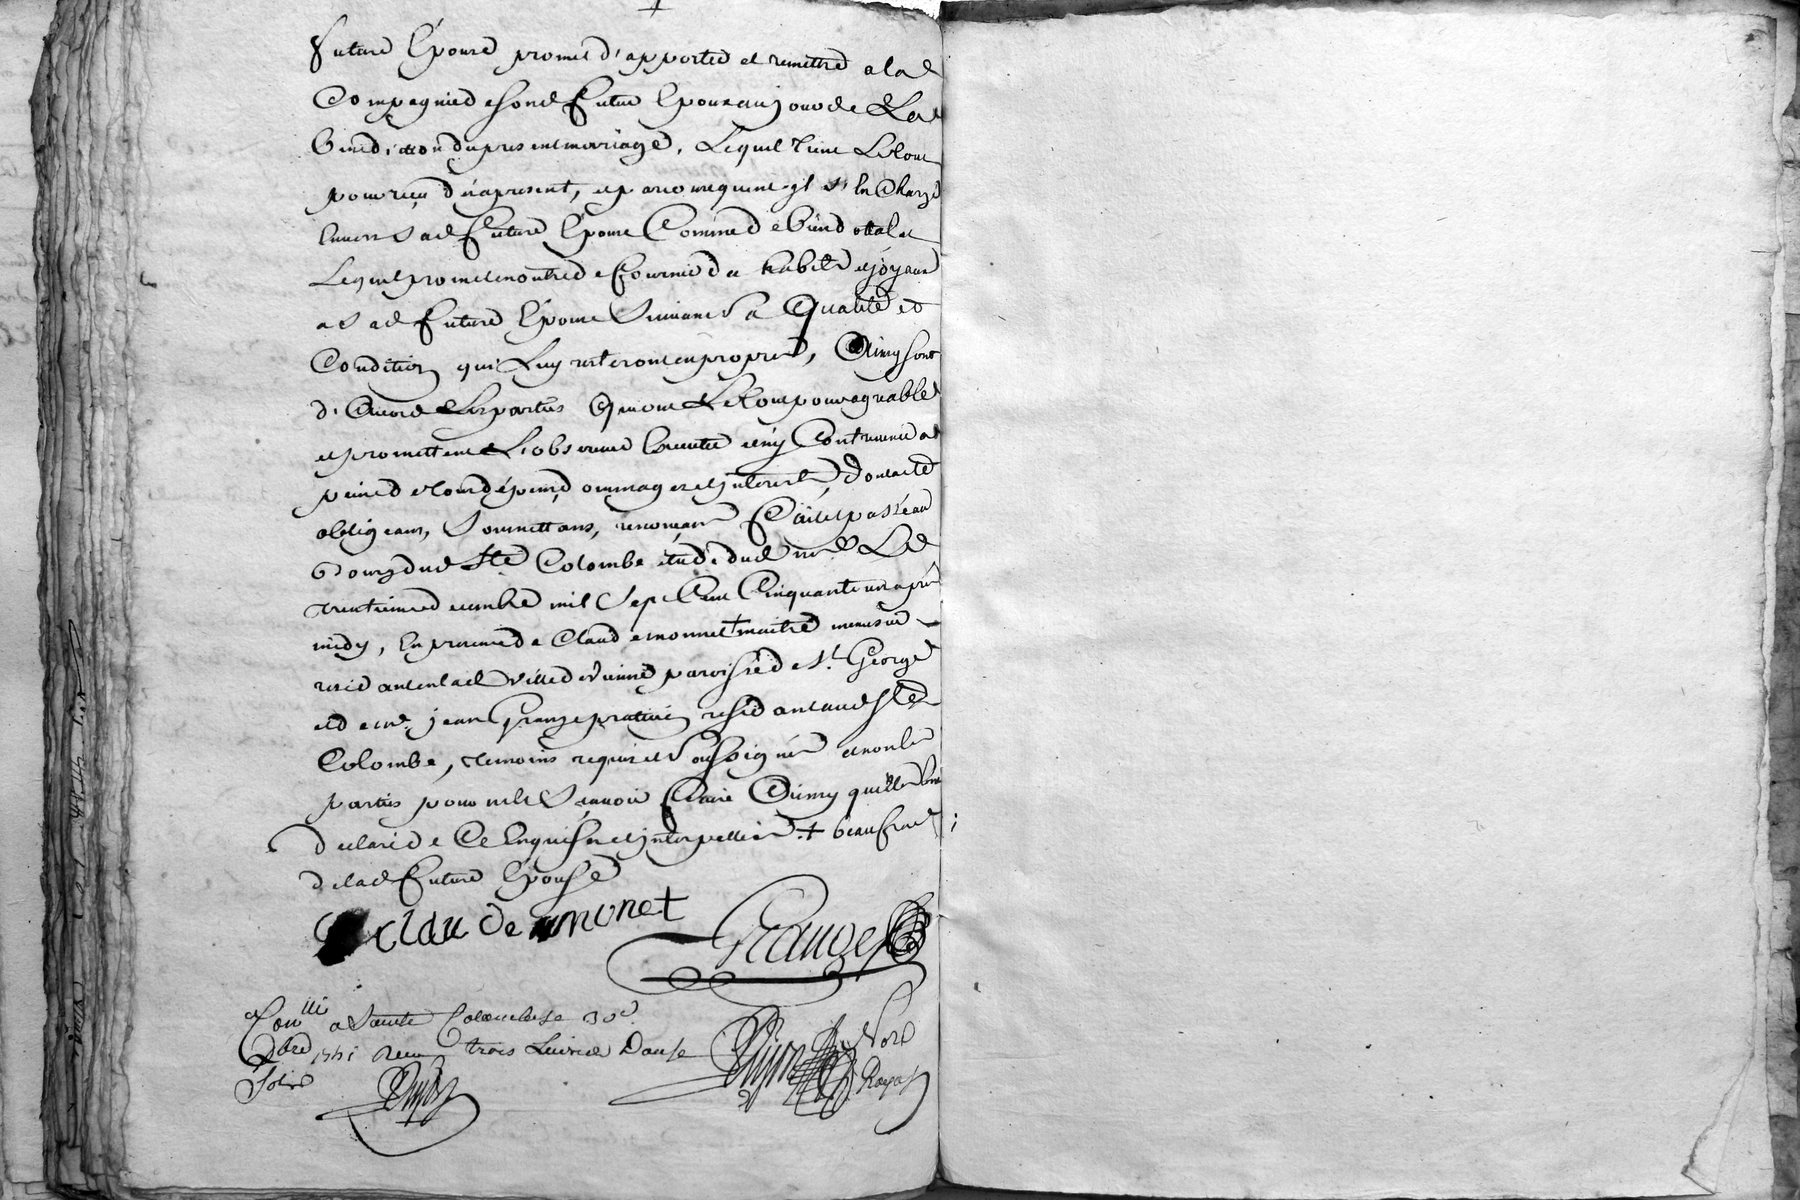 future Epouse promet d'apporter et remettre a la
Compagnie de son d. futur Epoux au jour de La
bénédiction du present mariage, Lequel tient Letout
pour reçu dez apresent, et par consequent il s'en charge
Envers sad. future Epouse Comme de bien dotal et
Lequel promet en outre de fournir des habits et joyaux
a sad. future Epouse Suivant sa Qualité et
Condition qui Luy resteront en propre, Ainsy sont
d'accord Les parties Qui ont Letout pour agreable
et promettent L'observer Executer et n'y Contrevenir a
peine de tous dépens dommages et interests, dont acte
obligeans, Soumettans, renonçans fait et passé au
bourg dud. Ste Colombe étude dud. nre Le
trentieme decembre mil Sept Cent Cinquante un après
midy, En presence de Claude monnet + maitre menusier
residant en lad. ville de vienne paroisse de St. George
et de me. jean Grange praticien residant aud. Ste
Colombe, temoins requis et soussignés et non les
parties pour ne le Sçavoir faire Ainsy qu'elles l'ont
declaré de Ce Enquises et interpellées + beaufrere
de lad. future Epouse
claude monet
Grange
Conllé a Sainte Colombe le 30e
Xbre 1751 Reçu trois Livres Douse
Sols
Nore
Royal